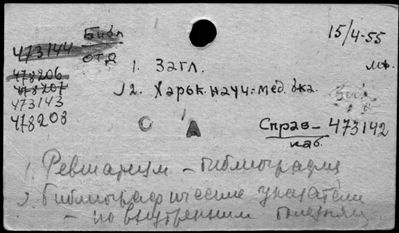 Библ
отд
473144
478206
478207
473143
478208
15/4-55
1. Загл.
мф.
2. Харьк. науч=мед. бка.
С А
Справ- 473142
каб.
1. Ревматизм - библиография
2. Библиографические указатели
- по внутренним болезням